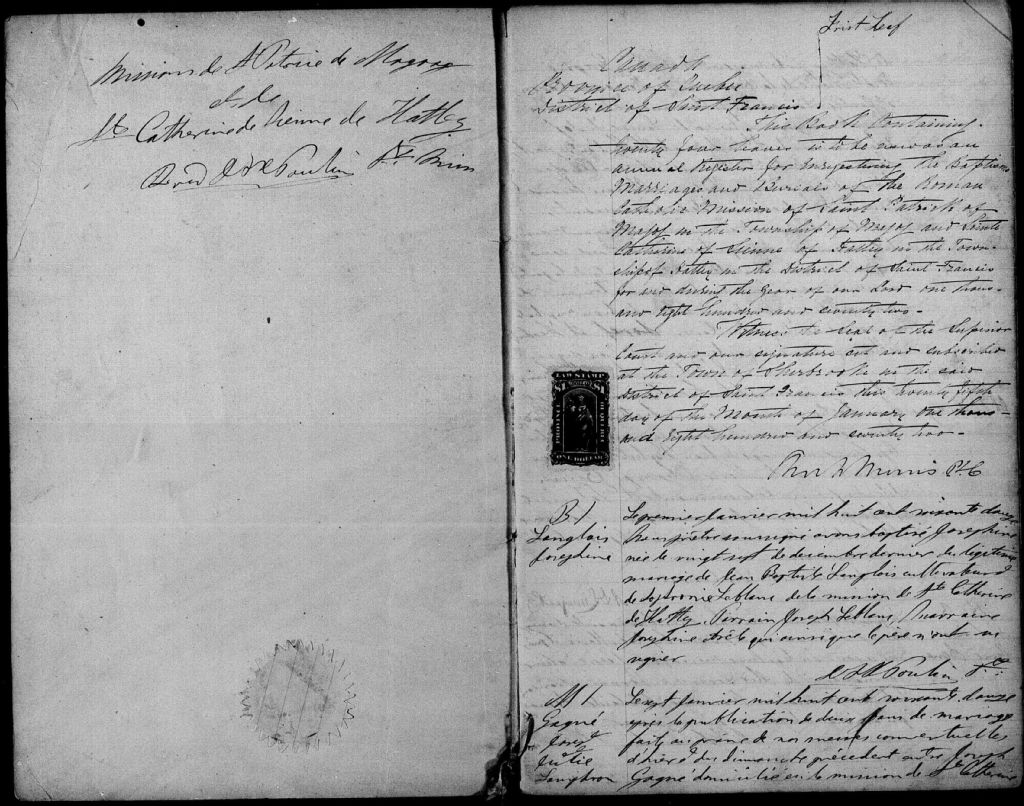 Missions de St Patrice de Magog
et de
Ste Catherine de Sienne de Hatley
Revd Poulin Ptre Miss
First Leaf
Canada
Province of Quebec
District of Saint Francis
This Book Containing
twenty four leaves is to be used as an
annual Register for Enregistering the Baptisms
Marriages and Burials of the Roman
Catholic Mission of Saint Patrick of
Magog in the Township of Magog and Sainte
Catherine of Sienne of Hatley in the Town-
ship of Hatley in the District of Saint Francis
for and during the Year of our Lord one thous-
and Eight hundred and seventy two.
Witness the Seal of the Superior
Court and our signature set and subscribed
at the Town of Sherbrooke in the said
District of Saint Francis this twenty fifth
day of the Month of January one thous-
and Eight hundred and seventy two.
LAW STAMP
$1 $1
PROVINCE QUEBEC
ONE DOLLAR
Morris
B. 1
Langlois
Josephine
Le premier Janvier mil huit cent soixante douze
Nous prêtre soussigné avons baptisé Josephine
née le vingt sept de decembre dernier du légitime
mariage de Jean Baptiste Langlois cultivateur &
de Sophronie Leblanc de la mission de Ste Catherine
de Hatley. Parrain Joseph Leblanc, Marraine
Josephine qui ainsi que le père n'ont su
signer
Poulin Ptre
M 1
Gagné
Joseph
&
Julie
Le sept Janvier mil huit cent soixante douze
après la publication de deux bans de mariage
faite au prône de nos messes conventuelles
d'hier & du dimanche précédent entre Joseph
Gagné domicilié en la mission de Ste Catherine